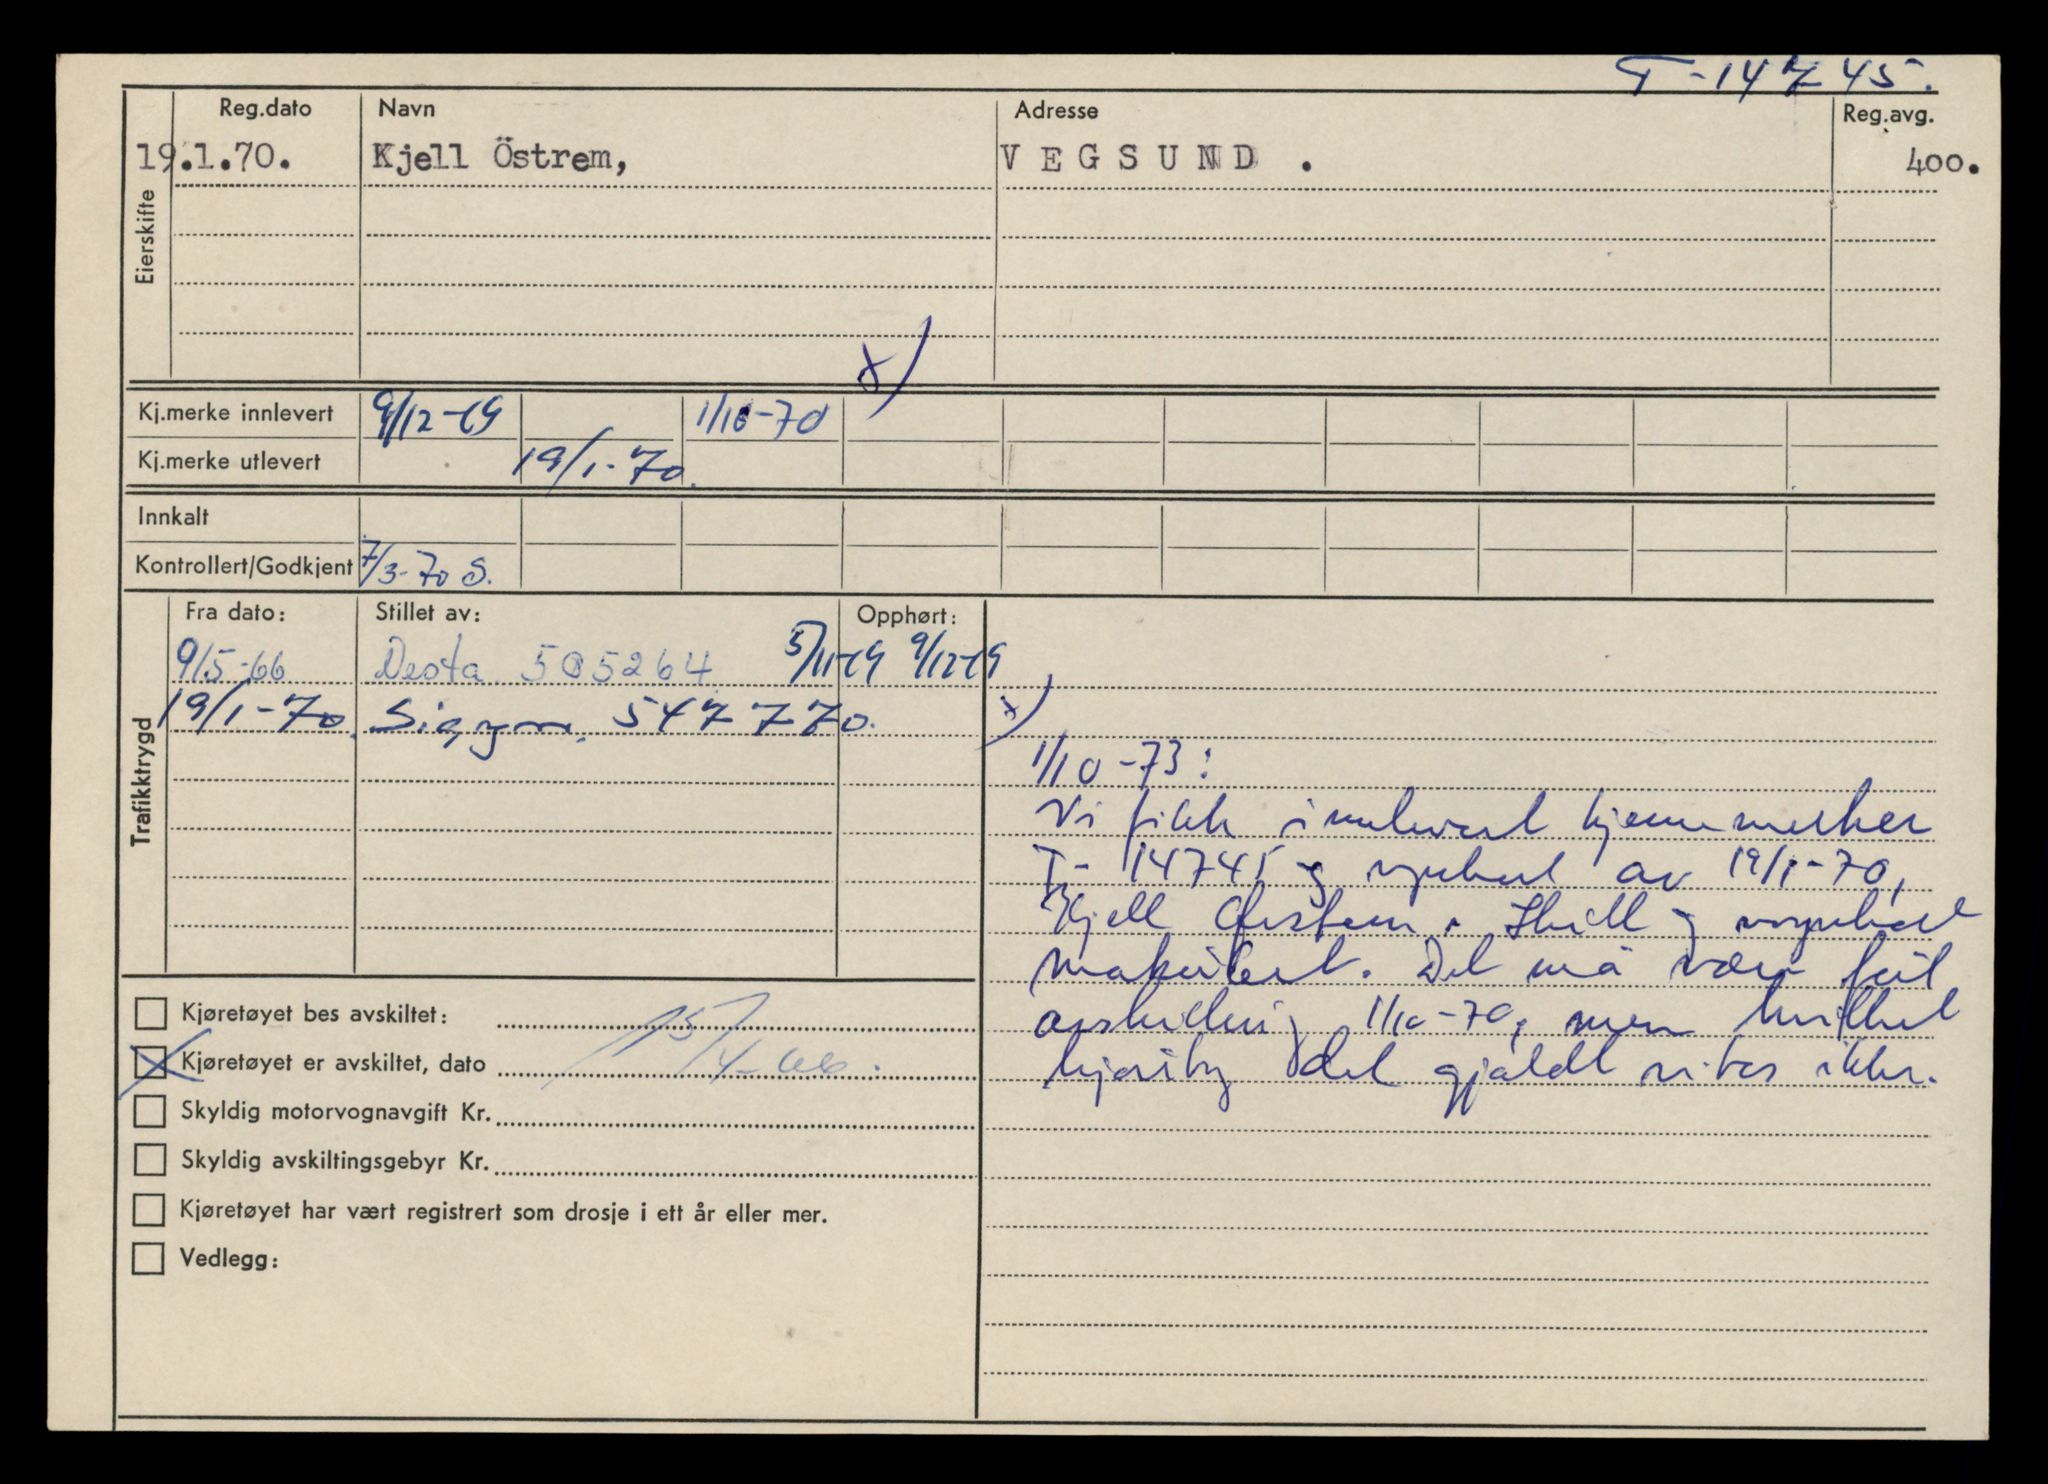 T-14745.
Reg.dato Navn Adresse Reg.avg.
19.1.70. Kjell Östrem, VEGSUND . 400.
Eierskifte
x)
Kj.merke innlevert 9/12-69 1/10-70
Kj.merke utlevert 19/1-70.
Innkalt
Kontrollert/Godkjent 7/3-70 S.
Trafiktrygd
Fra dato: Stillet av: Opphørt:
9/5-66 Desta 505264 5/11-69 9/12-69
19/1-70. Sigyn. 547770.
x)
1/10-73:
Vi fikk innlevert kjennemerker
T-14745 og vognkort av 19/1-70,
Kjell Østrem. Skilt og vognkort
makulert. Det må være feil
avskilting 1/10-70, men hvilket
kjøretøy det gjaldt vites ikke.
Kjøretøyet bes avskiltet:
Kjøretøyet er avskiltet, dato 15/4-66.
Skyldig motorvognavgift Kr.
Skyldig avskiltingsgebyr Kr.
Kjøretøyet har vært registrert som drosje i ett år eller mer.
Vedlegg: